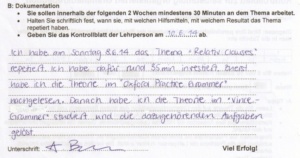 B: Dokumentation
• Sie sollen innerhalb der folgenden 2 Wochen mindestens 30 Minuten an dem Thema arbeiten.
• Halten Sie schriftlich fest, wann sie, mit welchen Hilfsmitteln, mit welchem Resultat das Thema
repetiert haben.
• Geben Sie das Kontrollblatt der Lehrperson am ab.
Ich habe am Sonntag 8.6.14 das Thema "Relativ Clauses"
repetiert. Ich habe dafür rund 35 min investiert. Zuerst
habe ich die Theorie im "Oxford Practice Grammar"
nachgelesen. Danach habe ich die Theorie im
Grammar" studiert und die dazugehörenden Aufgaben
gelöst.
Unterschrift:
Viel Erfolg!